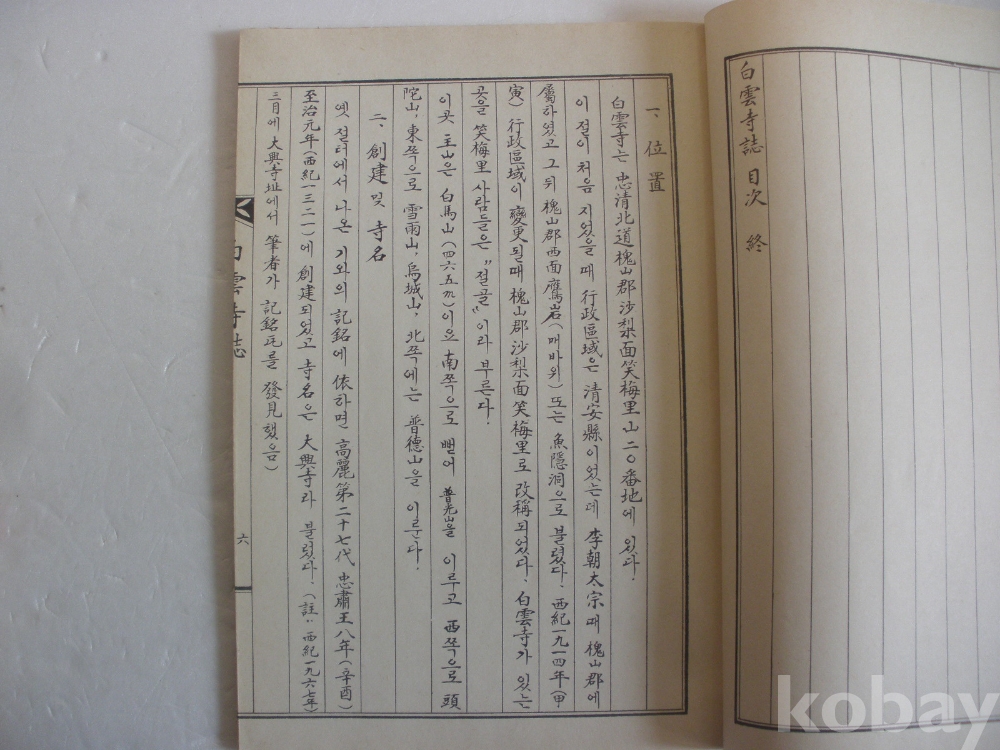 白雲寺誌 目次 終
一、位置
白雲寺는 忠清北道槐山郡沙梨面笑梅里山二○番地에 있다.
이 절이 처음 지었을때 行政區域은 清安縣이었는데 李朝太宗때 槐山郡에
屬하였고 그 뒤 槐山郡西面鷹岩(매바위) 또는 魚隱洞으로 불렸다. 西紀一九一四年(甲
寅) 行政區域이 變更될때 槐山郡沙梨面笑梅里로 改稱되었다. 白雲寺가 있는
곳을 笑梅里 사람들은 "절골"이라 부른다.
이곳 主山은 白馬山(四六五m)이요 南쪽으로 뻗어 普光山을 이루고 西쪽으로 頭
陀山, 東쪽으로 雪雨山, 烏城山, 北쪽에는 普德山을 이룬다.
二、創建 및 寺名
옛 절터에서 나온 기와의 記銘에 依하면 高麗第二十七代 忠肅王八年(辛酉)
至治元年(西紀一三二一)에 創建되었고 寺名은 大興寺라 불렸다. (註: 西紀一九六七年
三月에 大興寺址에서 筆者가 記銘瓦를 發見했음)
白雲寺誌
六
kobay